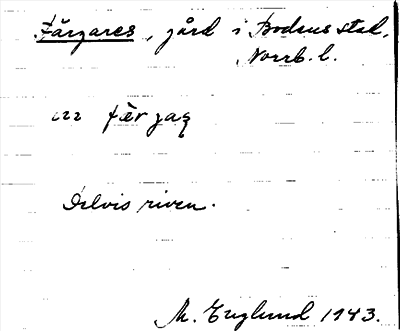 Färgares, gård i Bodens stad,
Norrb. l.
Delvis riven.
M. Englund 1943.